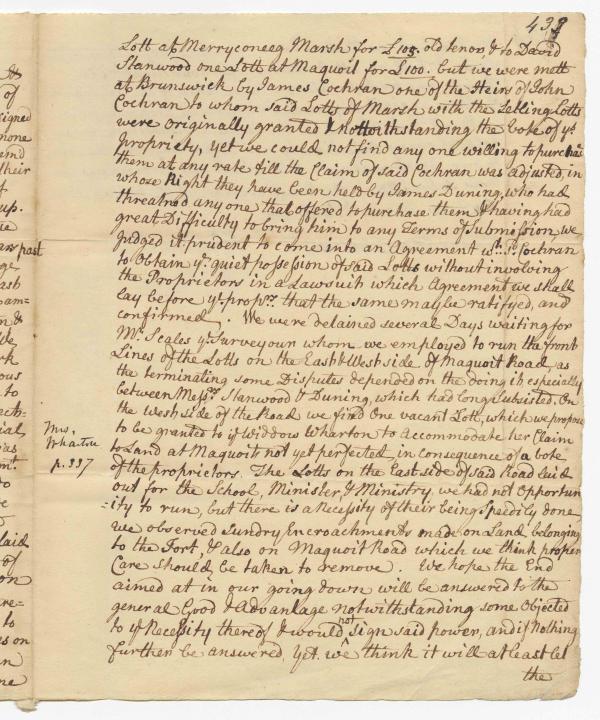 439
Lott at Merryconeeg Marsh for £105. old tenor, & to David
Stanwood one Lott at Maquoit for £100. but we were mett
at Brunswick by James Cochran one of the Heirs of John
Cochran to whom said Lotts of Marsh with the Setling Lotts
were originally granted & nottwithstanding the Vote of ye
Propriety, yet we could not find any one willing to purchase
them at any rate till the Claim of said Cochran was adjusted, in
whose Right they have been held by James Duning, who had
threatned any one that offered to purchase them & having had
great Difficulty to bring him to any Terms of Submission, we
judged it prudent to come into an Agreement wth. sd. Cochran
to Obtain ye. quiet possession of said Lotts without involving
the Proprietors in a Lawsuit which Agreement we shall
lay before ye. proprs. that the same may be ratifyed, and
confirmed. We were detained several Days waiting for
Mr. Scales ye Surveyour whom we employed to run the front
Lines of the Lotts on the East & West side of Maquoit Road, as
the terminating some Disputes depended on the doing it especially
between Messrs. Stanwood & Duning, which had long subsisted. On
the west side of the Road we find One vacant Lott, which we propose
to be granted to ye Widdow Wharton to Accommodate her Claim
to Land at Maquoit not yet perfected, in consequence of a vote
of the proprietors. The Lotts on the East side of said Road laid
out for the School, Minister, & Ministry, we had not Opportun
=ity to run, but there is a Necessity of their being Speedily done
we observed Sundry Encroachments made on Land belonging
to the Fort, & also on Maquoit Road which we think proper
Care should be taken to remove. We hope the End
aimed at in our going down will be answered to the
general Good & Advantage notwithstanding some Objected
to ye Necessity thereof & would not Sign said power, and if Nothing
further be answered, yet we think it will at least let
the
Mrs.
p. 337